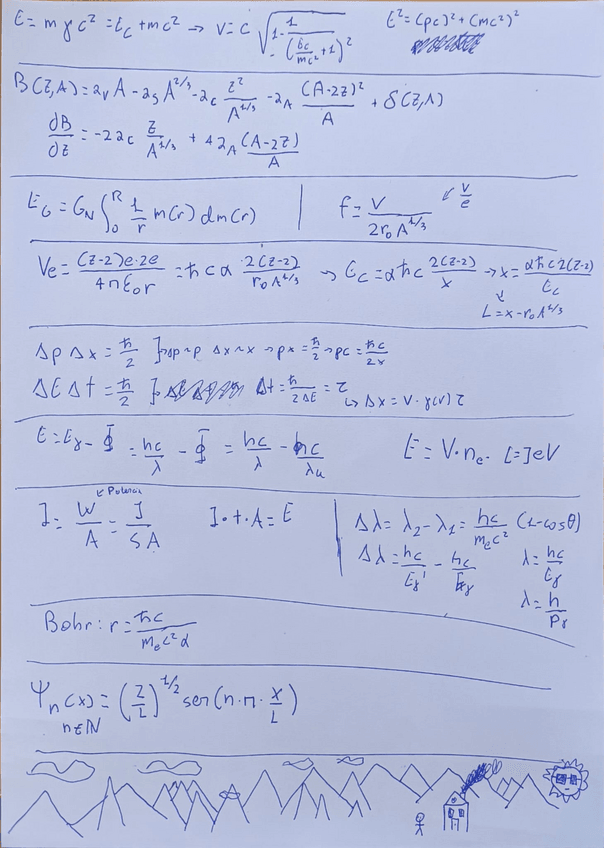 E = mγc² = Ec + mc² → v = c √(1 - 1/(Ec/mc² + 1)²)
E² = (pc)² + (mc²)²
B(Z,A) = a_v A - a_s A^{2/3} - a_c Z²/A^{1/3} - a_A (A-2Z)²/A + δ(Z,A)
∂B/∂Z = -2a_c Z/A^{1/3} + 4a_A (A-2Z)/A
E_G = G_N ∫₀^R 1/r m(r) dm(r)
f = v/(2r₀A^{1/3}) ↙ v/e
Ve = (Z-2)e·2e/(4πε₀r) = ħcα 2(Z-2)/(r₀A^{1/3}) → Ec = αħc 2(Z-2)/x → x = αħc2(Z-2)/Ec
↓
L = x - r₀A^{1/3}
Δp Δx = ħ/2 } → Δp~p Δx~x → px = ħ/2 → pc = ħc/2x
ΔE Δt = ħ/2 } → Δt = ħ/(2ΔE) = τ
↳ Δx = v·γ(v)τ
E = Eγ - Φ = hc/λ - Φ = hc/λ - hc/λu
E = V·ne· [=]eV
← Potencia
I = W/A = J/(S A)
I·t·A = E
Δλ = λ₂ - λ₁ = hc/(mec²) (1-cosθ)
Δλ = hc/Eγ' - hc/Eγ
λ = hc/Eγ
λ = h/Pγ
Bohr: r = ħc/(mec²α)
Ψn(x) = (2/L)^{1/2} sen(n·π·x/L)
n∈ℕ